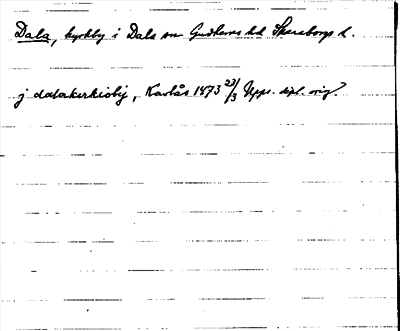 Dala, kyrkby i Dala sn Gudhems hd Skaraborgs l.
j dalakirkioby, Kavlås 1473 23/3 Upps. dipl. orig.